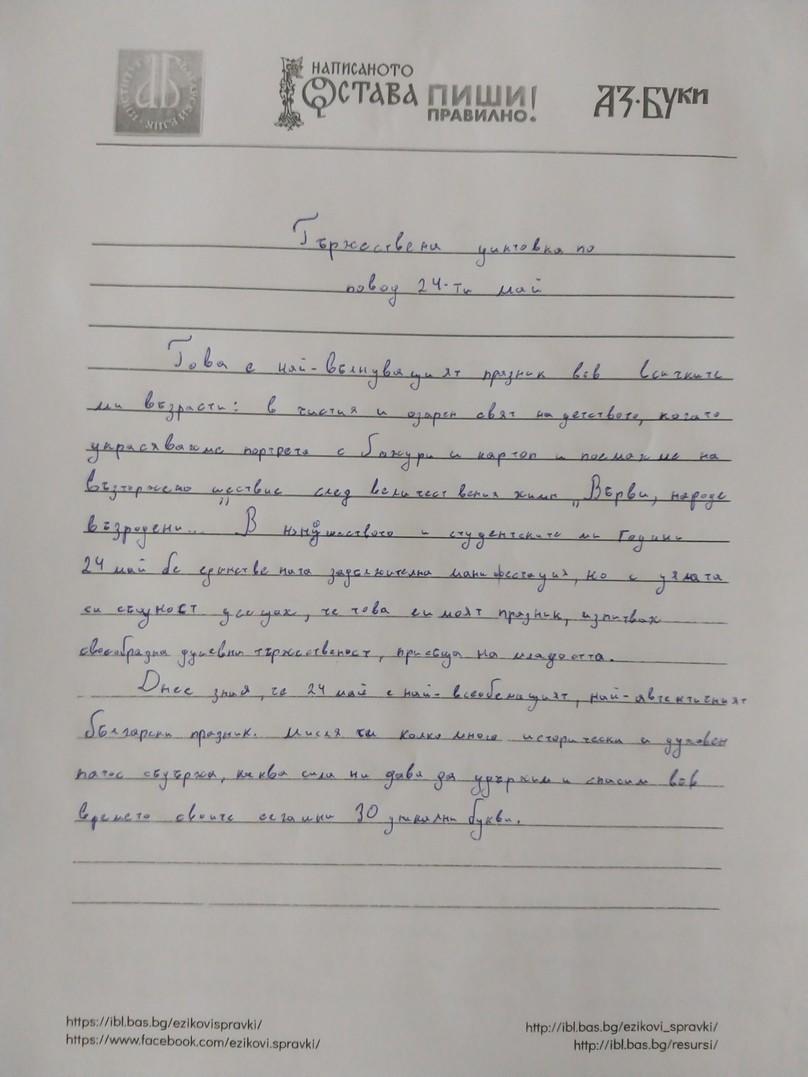 ИНСТИТУТ ЗА БЪЛГАРСКИ ЕЗИК
НАПИСАНОТО
ОСТАВА ПИШИ
ПРАВИЛНО!
АЗ·БУКИ
Тържествена диктовка по
повод 24-ти май
Това е най-вълнуващият празник във всичките
ми възрасти: в чистия и озарен свят на детството, когато
украсявахме портрета с божури и картоп и поемахме на
възторжено шествие след величествения химн „Върви, народе
възродени“... В юношеството и студентските ми години
24 май бе единствената задължителна манифестация, но с цялата
си същност усещах, че това си моят празник, изпитвах
своеобразна душевна тържественост, присъща на младостта.
Днес зная, че 24 май е най-всеобемащият, най-автентичният
български празник. Мисля си колко много исторически и духовен
патос съдържа, каква сила ни дава да удържим и спасим във
времето своите сегашни 30 уникални букви.
https://ibl.bas.bg/ezikovispravki/
https://www.facebook.com/ezikovi.spravki/
http://ibl.bas.bg/ezikovi_spravki/
http://ibl.bas.bg/resursi/